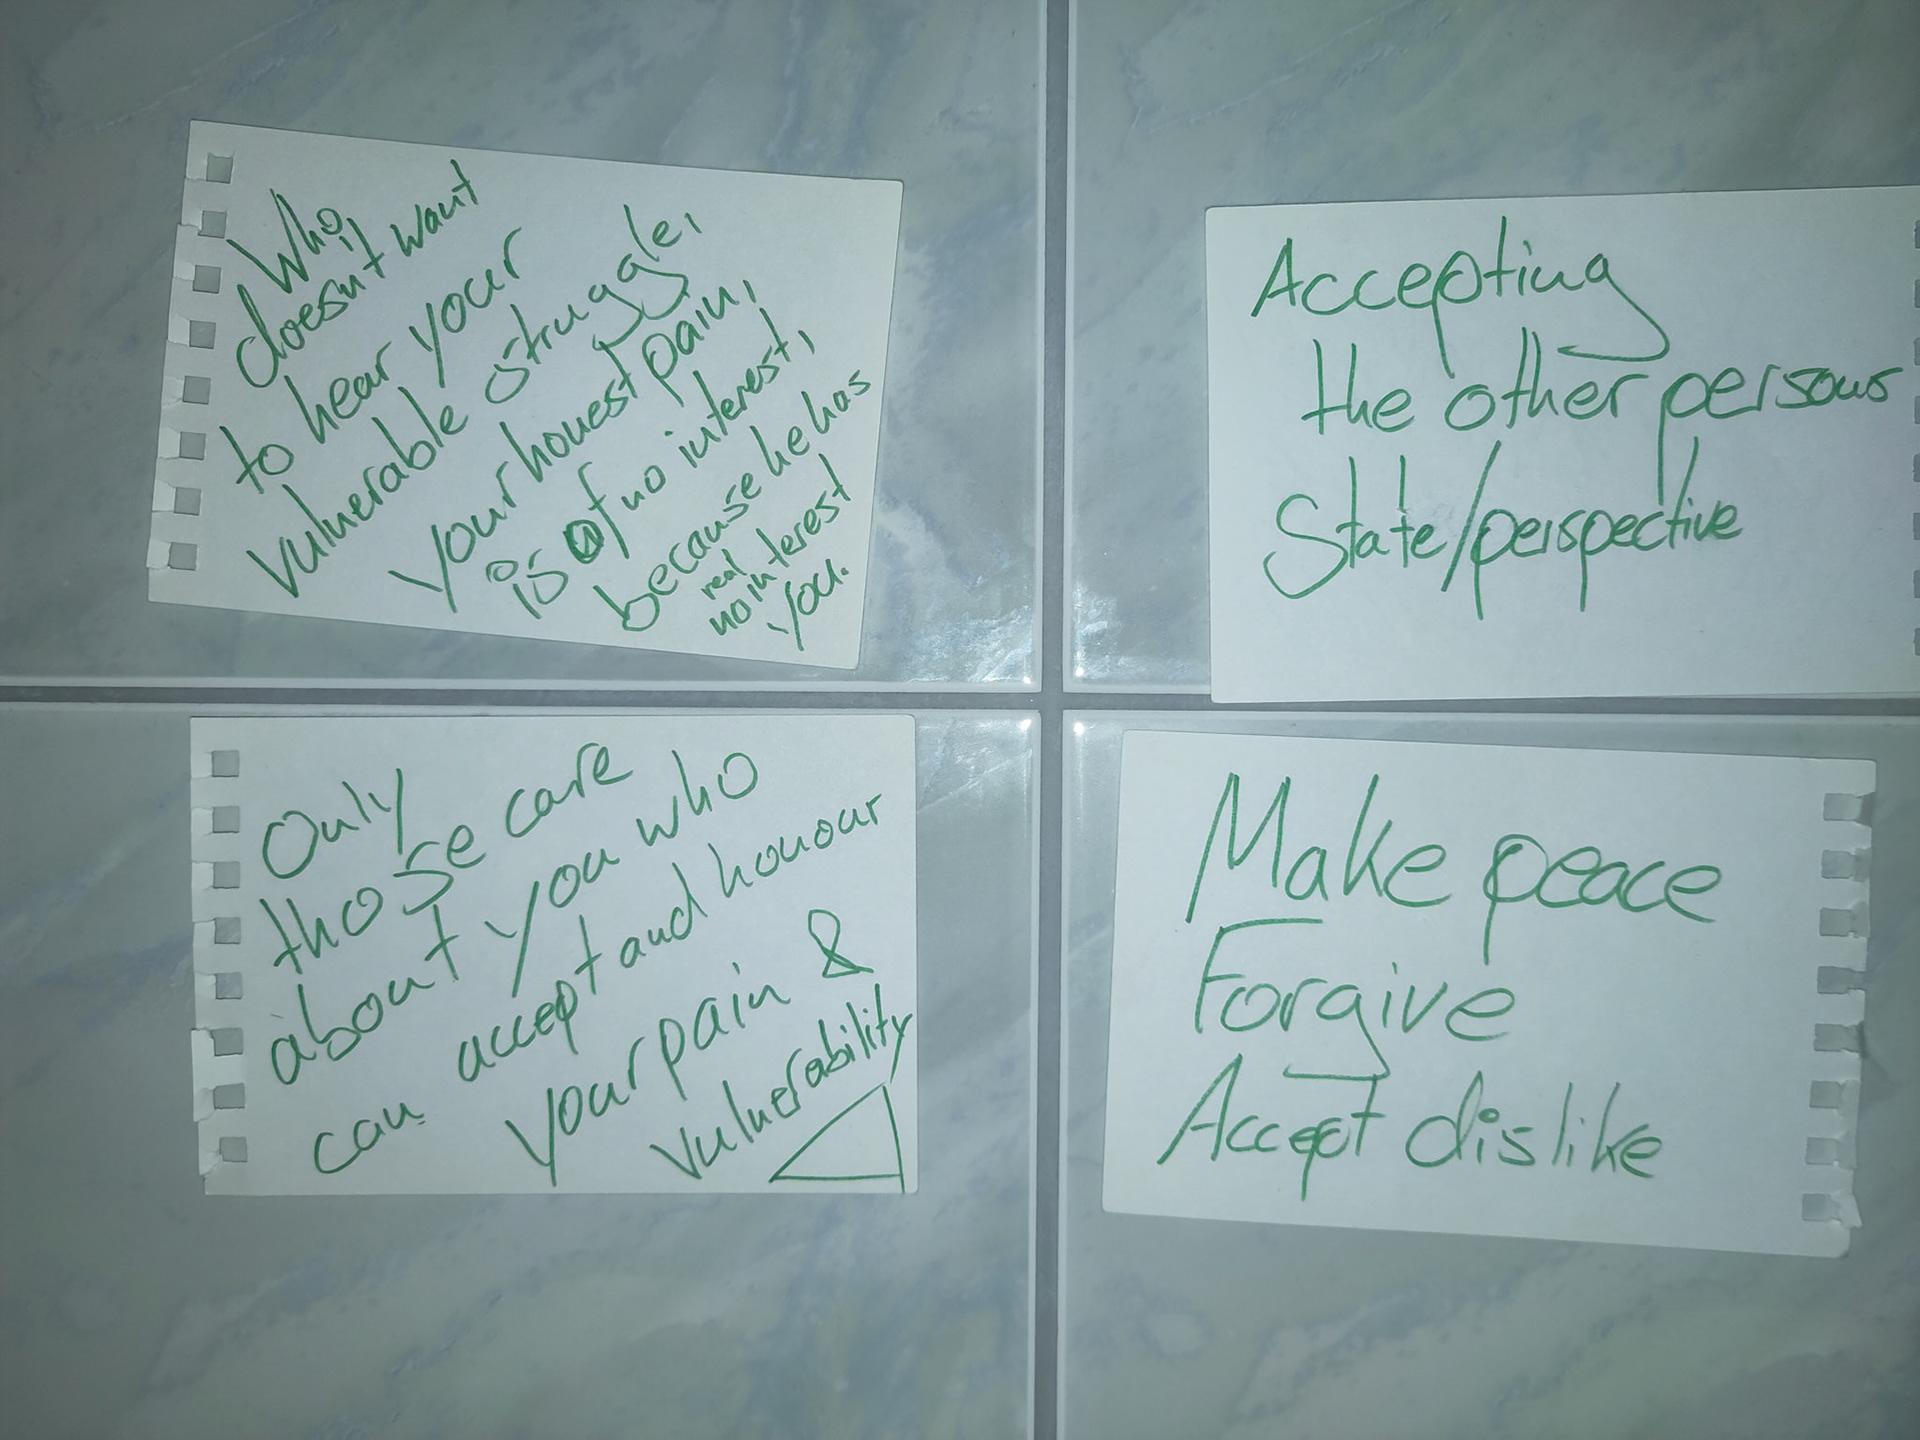 Who,
doesn't want
to hear your
vulnerable struggle,
your honest pain,
is of no interest,
because he has
real
no interest
you.
Accepting
the other persons
State/perspective
Only
those care
about you who
can accept and honour
your pain &
vulnerability
Make peace
Forgive
Accept dislike